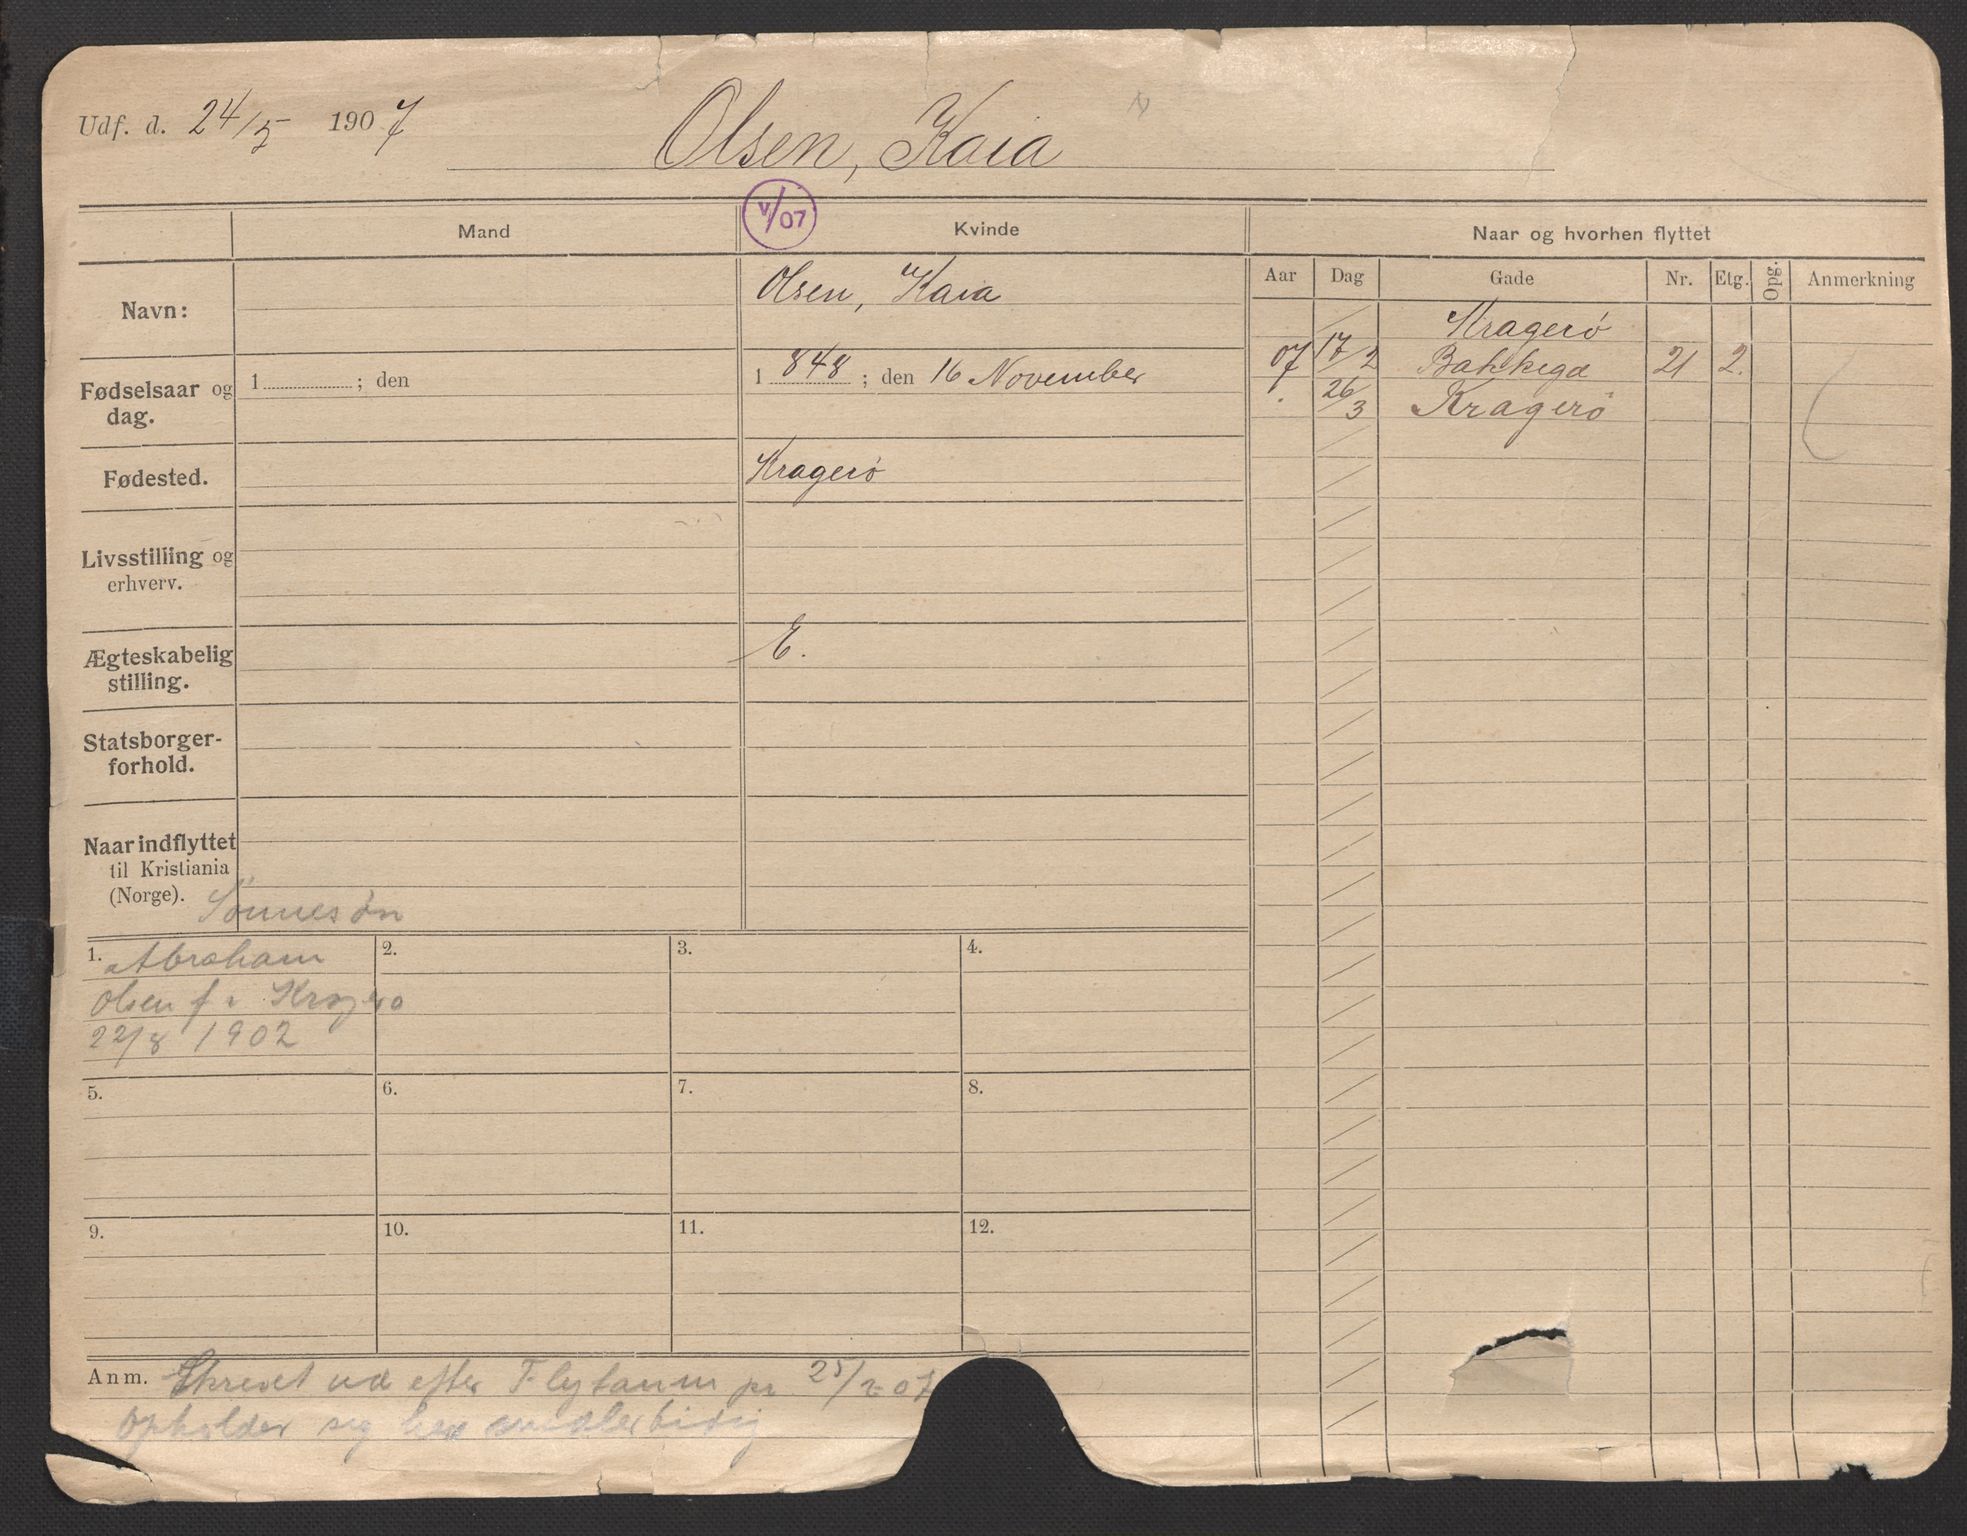 Udf. d. 24/5 1907
Olsen, Kaia
V/07
Mand
Kvinde
Naar og hvorhen flyttet
Aar Dag Gade Nr. Etg. Opg. Anmerkning
Navn:
Olsen, Kaia
Kragerø
07 17/2 Bakkegd 21 2.
. 26/3 Kragerø
Fødselsaar og
dag.
1 ; den
1848 ; den 16 November
Fødested.
Kragerø
Livsstilling og
erhverv.
Ægteskabelig
stilling.
E.
Statsborger-
forhold.
Naar indflyttet
til Kristiania
(Norge).
Sønnesøn
1. Abraham
Olsen f i Kragerø
22/8 1902
2.
3.
4.
5.
6.
7.
8.
9.
10.
11.
12.
Anm. Skrevet ud efter Flytanm pr 25/2 07
Opholder sig her midlertidig